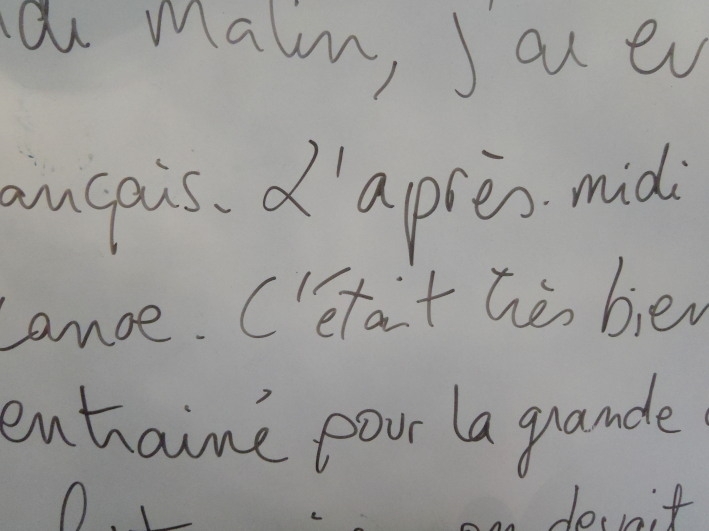 di matin, j'ai eu
ançais. L'après-midi
canoe. C'était très bien
entrainé pour la grande
on devait